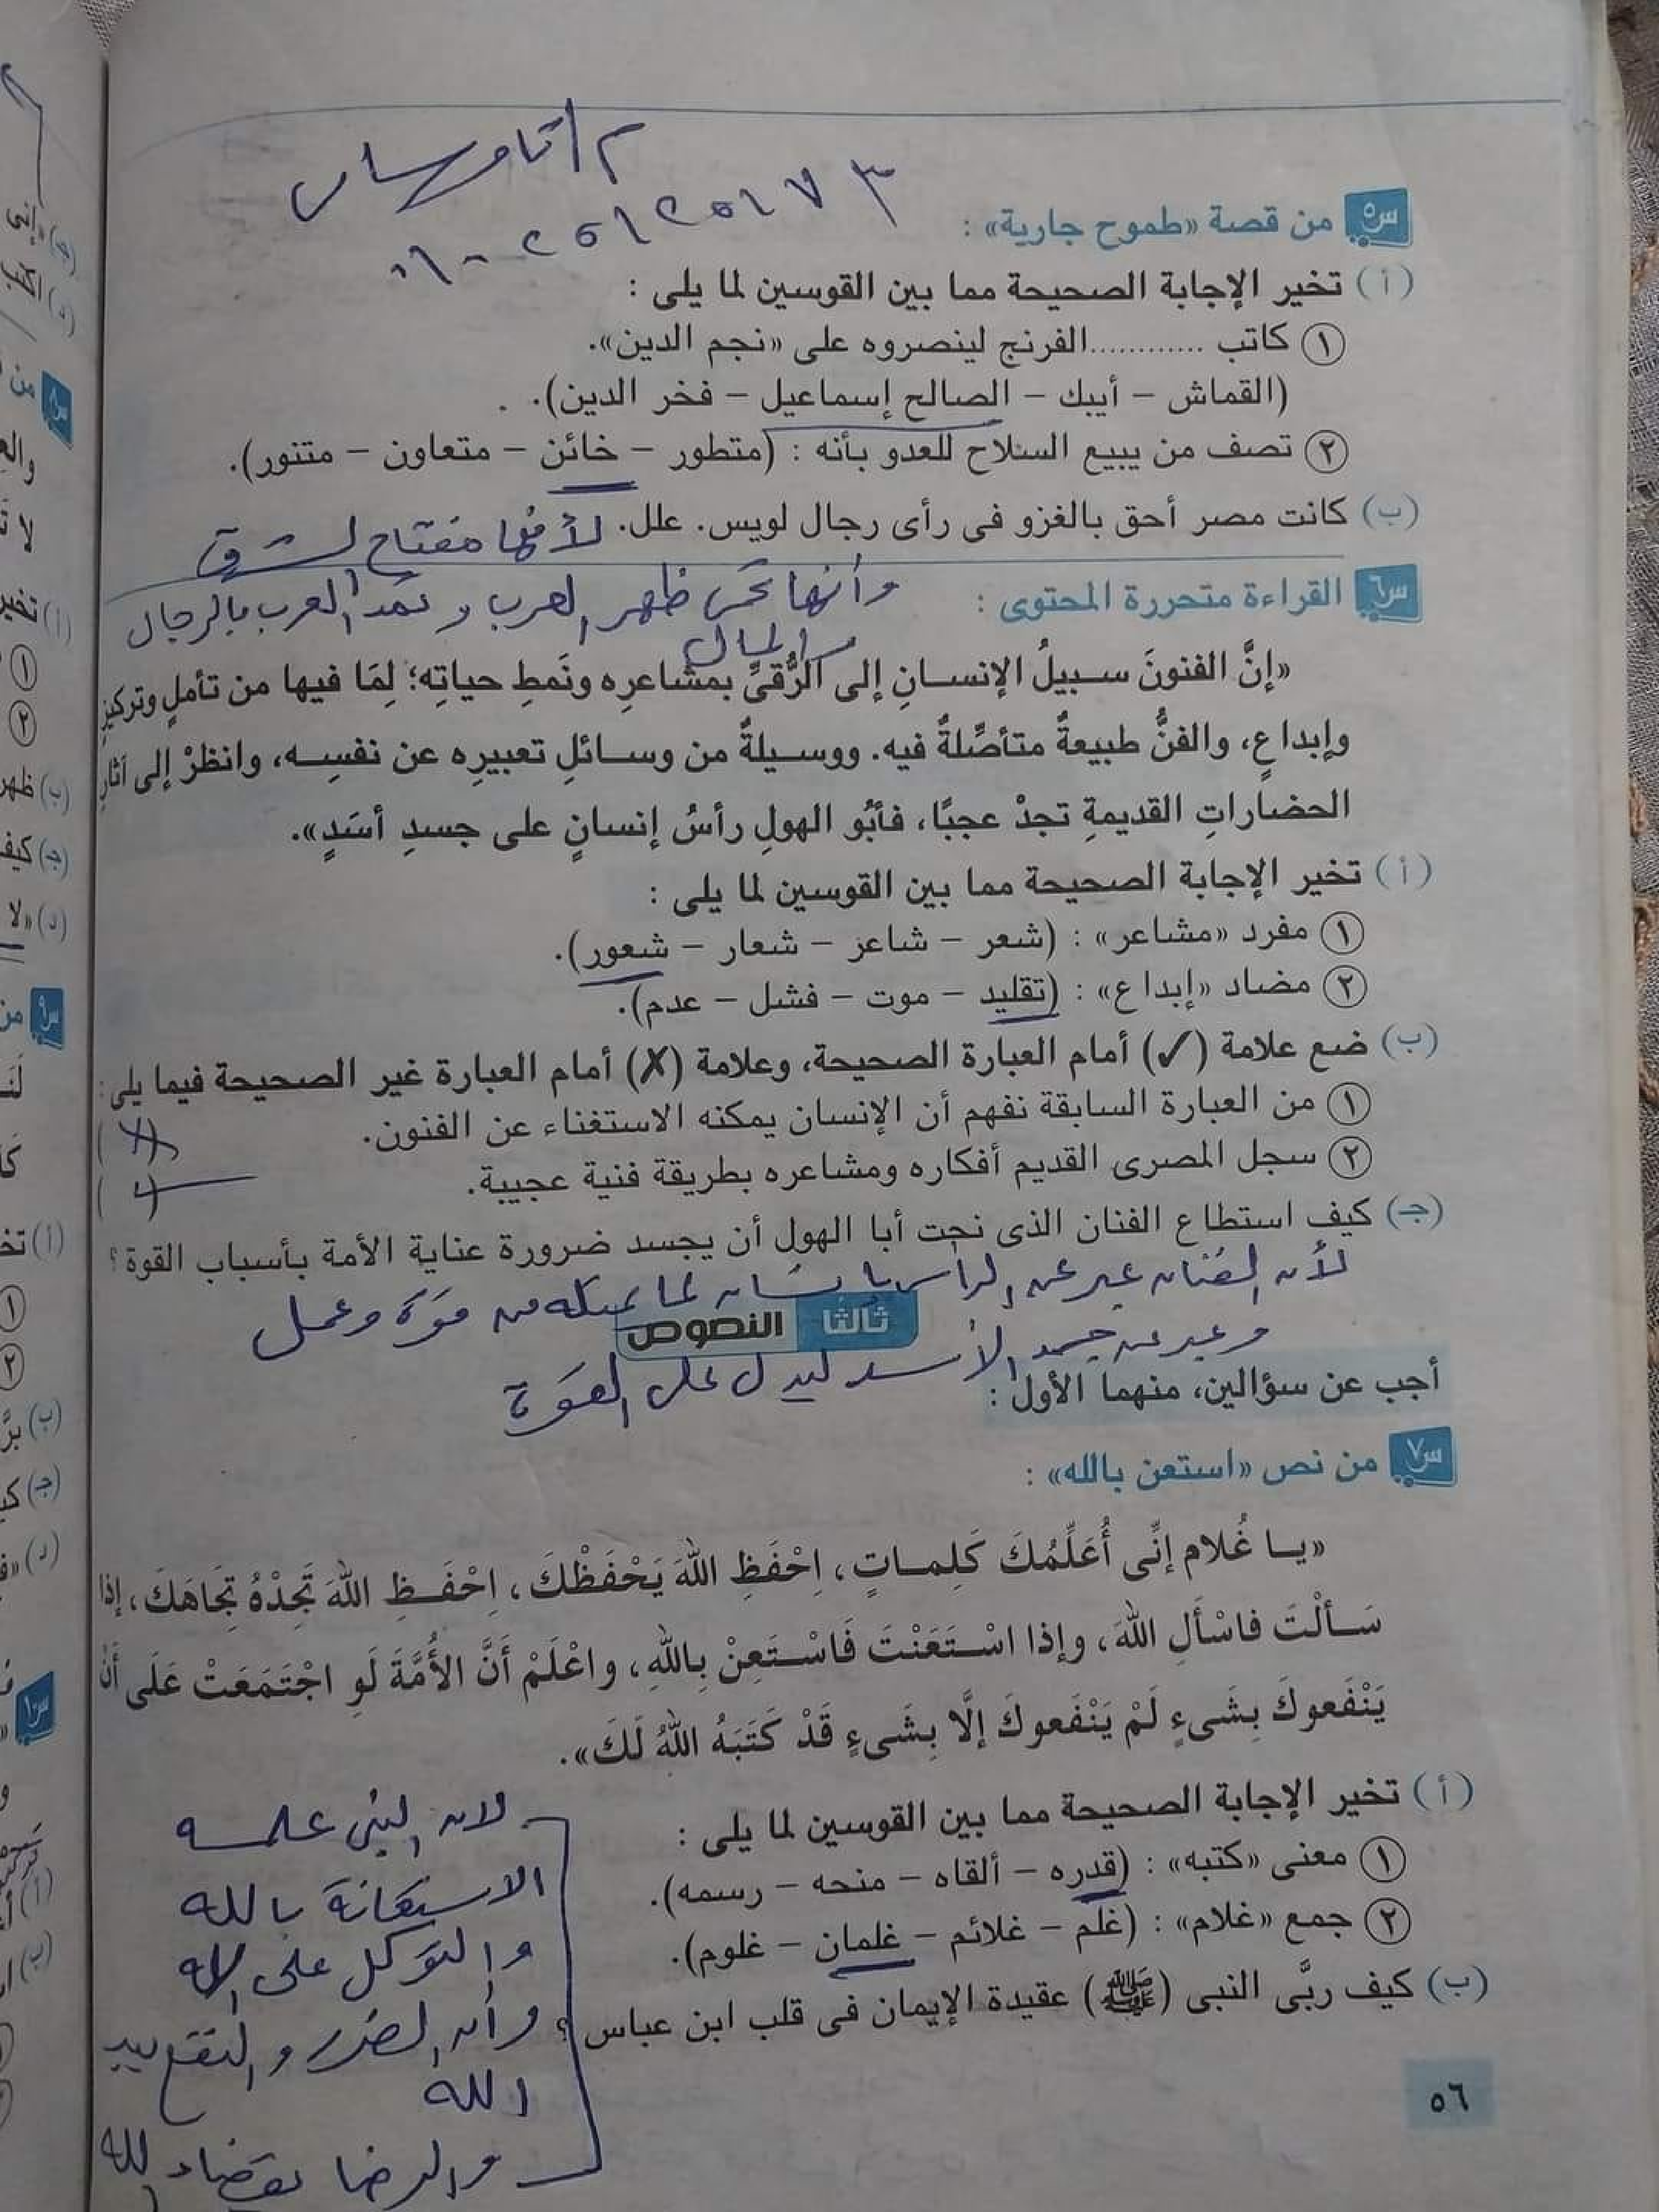 س٥ من قصة «طموح جارية» :
(أ) تخير الإجابة الصحيحة مما بين القوسين لما يلى :
١ كاتب ............الفرنج لينصروه على «نجم الدين».
(القماش – أيبك – الصالح إسماعيل – فخر الدين).
٢ تصف من يبيع السلاح للعدو بأنه : (متطور – خائن – متعاون – متنور).
(ب) كانت مصر أحق بالغزو فى رأى رجال لويس. علل. لأنها مفتاح الشرق
وأنها تحمى ظهر العرب و تمد العرب بالرجال
والمال
س٦ القراءة متحررة المحتوى :
«إنَّ الفنونَ سبيلُ الإنسانِ إلى الرُّقىِّ بمشاعرِه ونَمطِ حياتِه؛ لِمَا فيها من تأملٍ وتركيزٍ
وإبداعٍ، والفنُّ طبيعةٌ متأصِّلةٌ فيه. ووسيلةٌ من وسائلِ تعبيرِه عن نفسِه، وانظرْ إلى آثارِ
الحضاراتِ القديمةِ تجدْ عجبًا، فأبُو الهولِ رأسُ إنسانٍ على جسدِ أسَدٍ».
(أ) تخير الإجابة الصحيحة مما بين القوسين لما يلى :
١ مفرد «مشاعر» : (شعر – شاعر – شعار – شعور).
٢ مضاد «إبداع» : (تقليد – موت – فشل – عدم).
(ب) ضع علامة (✓) أمام العبارة الصحيحة، وعلامة (✗) أمام العبارة غير الصحيحة فيما يلى :
١ من العبارة السابقة نفهم أن الإنسان يمكنه الاستغناء عن الفنون. (✗)
٢ سجل المصرى القديم أفكاره ومشاعره بطريقة فنية عجيبة. (✓)
(جـ) كيف استطاع الفنان الذى نحت أبا الهول أن يجسد ضرورة عناية الأمة بأسباب القوة ؟
لأن الفنان عبر عن الراس بإنسان لما يمتلكه من قوة وعمل
وعبر عن جسد الأسد ليدل على القوة
ثالثًا النصوص
أجب عن سؤالين، منهما الأول :
س٧ من نص «استعن بالله» :
«يا غُلام إنِّى أُعَلِّمُكَ كَلِماتٍ، اِحْفَظِ اللهَ يَحْفَظْكَ، اِحْفَظِ اللهَ تَجِدْهُ تِجَاهَكَ، إذا
سَألْتَ فاسْأَلِ اللهَ، وإذا اسْتَعَنْتَ فَاسْتَعِنْ بِاللهِ، واعْلَمْ أَنَّ الأُمَّةَ لَوِ اجْتَمَعَتْ عَلَى أَنْ
يَنْفَعوكَ بِشَىءٍ لَمْ يَنْفَعوكَ إلَّا بِشَىءٍ قَدْ كَتَبَهُ اللهُ لَكَ».
(أ) تخير الإجابة الصحيحة مما بين القوسين لما يلى :
١ معنى «كتبه» : (قدره – ألقاه – منحه – رسمه).
٢ جمع «غلام» : (غلم – غلائم – غلمان – غلوم).
(ب) كيف ربَّى النبى (ﷺ) عقيدة الإيمان فى قلب ابن عباس ؟
لان النبى علمه
الاستعانة بالله
والتوكل على الله
وأن الضرر والنفع بيد
الله
والرضا بقضاء الله
٥٦